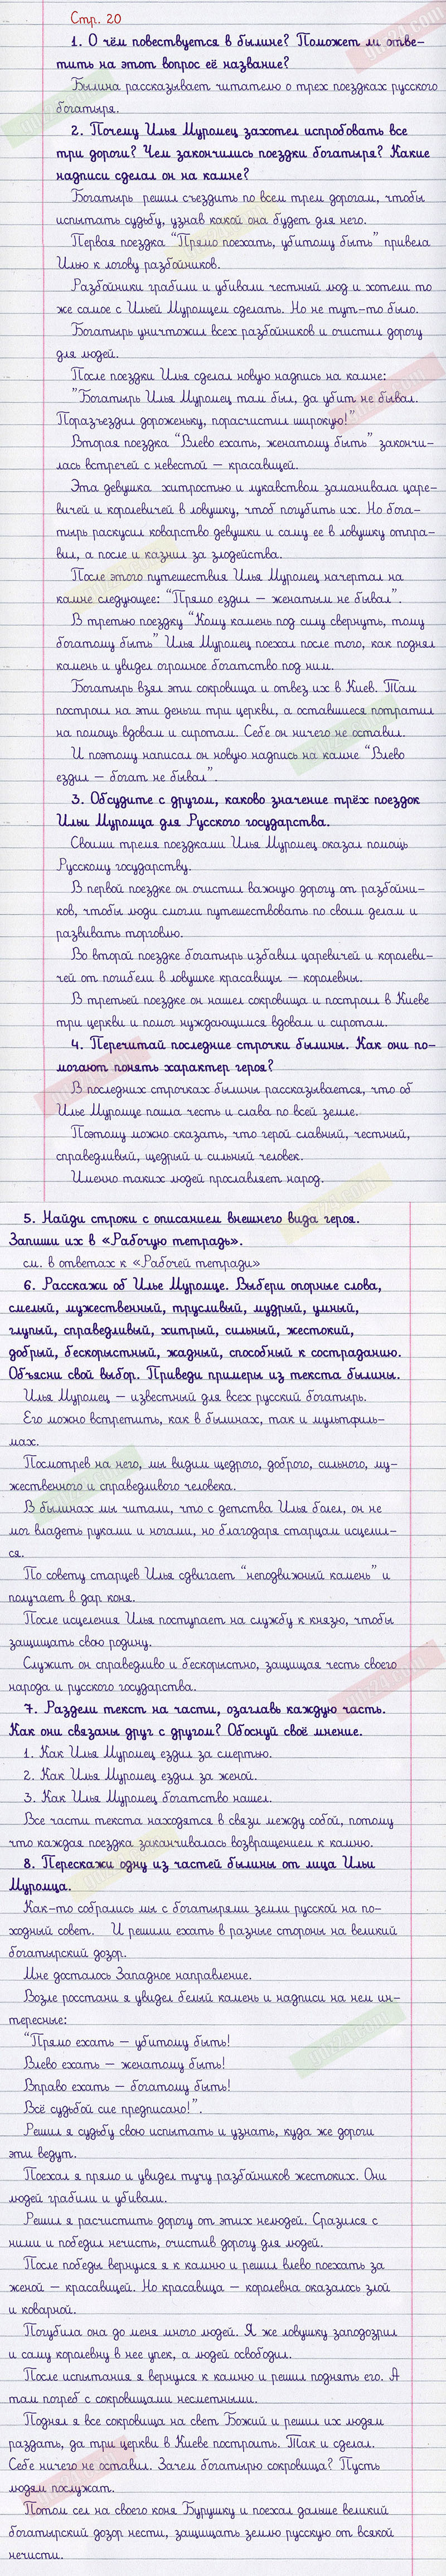 Стр. 20
1. О чём повествуется в былине? Поможет ли отве-
тить на этот вопрос её название?
Былина рассказывает читателю о трех поездках русского
богатыря.
2. Почему Илья Муромец захотел испробовать все
три дороги? Чем закончились поездки богатыря? Какие
надписи сделал он на камне?
Богатырь решил съездить по всем трем дорогам, чтобы
испытать судьбу, узнав какой она будет для него.
Первая поездка "Прямо поехать, убитому быть" привела
Илью к логову разбойников.
Разбойники грабили и убивали честный люд и хотели то
же самое с Ильей Муромцем сделать. Но не тут-то было.
Богатырь уничтожил всех разбойников и очистил дорогу
для людей.
После поездки Илья сделал новую надпись на камне:
"Богатырь Илья Муромец там был, да убит не бывал.
Поразъездил дороженьку, порасчистил широкую!"
Вторая поездка "Влево ехать, женатому быть" закончи-
лась встречей с невестой – красавицей.
Эта девушка хитростью и лукавством заманивала царе-
вичей и королевичей в ловушку, чтоб погубить их. Но бога-
тырь раскусил коварство девушки и саму ее в ловушку отпра-
вил, а после и казнил за злодейства.
После этого путешествия Илья Муромец начертал на
камне следующее: "Прямо ездил – женатым не бывал".
В третью поездку "Кому камень под силу свернуть, тому
богатому быть" Илья Муромец поехал после того, как поднял
камень и увидел огромное богатство под ним.
Богатырь взял эти сокровища и отвез их в Киев. Там
построил на эти деньги три церкви, а оставшиеся потратил
на помощь вдовам и сиротам. Себе он ничего не оставил.
И поэтому написал он новую надпись на камне "Влево
ездил – богат не бывал".
3. Обсудите с другом, каково значение трёх поездок
Ильи Муромца для Русского государства.
Своими тремя поездками Илья Муромец оказал помощь
Русскому государству.
В первой поездке он очистил важную дорогу от разбойни-
ков, чтобы люди смогли путешествовать по своим делам и
развивать торговлю.
Во второй поездке богатырь избавил царевичей и королеви-
чей от погибели в ловушке красавицы – королевны.
В третьей поездке он нашел сокровища и построил в Киеве
три церкви и помог нуждающимся вдовам и сиротам.
4. Перечитай последние строчки былины. Как они по-
могают понять характер героя?
В последних строчках былины рассказывается, что об
Илье Муромце пошла честь и слава по всей земле.
Поэтому можно сказать, что герой славный, честный,
справедливый, щедрый и сильный человек.
Именно таких людей прославляет народ.
5. Найди строки с описанием внешнего вида героя.
Запиши их в «Рабочую тетрадь».
см. в ответах к «Рабочей тетради»
6. Расскажи об Илье Муромце. Выбери опорные слова,
смелый, мужественный, трусливый, мудрый, умный,
глупый, справедливый, хитрый, сильный, жестокий,
добрый, бескорыстный, жадный, способный к состраданию.
Объясни свой выбор. Приведи примеры из текста былины.
Илья Муромец – известный для всех русский богатырь.
Его можно встретить, как в былинах, так и мультфиль-
мах.
Посмотрев на него, мы видим щедрого, доброго, сильного, му-
жественного и справедливого человека.
В былинах мы читали, что с детства Илья болел, он не
мог владеть руками и ногами, но благодаря старцам исцелил-
ся.
По совету старцев Илья сдвигает "неподвижный камень" и
получает в дар коня.
После исцеления Илья поступает на службу к князю, чтобы
защищать свою родину.
Служит он справедливо и бескорыстно, защищая честь своего
народа и русского государства.
7. Раздели текст на части, озаглавь каждую часть.
Как они связаны друг с другом? Обоснуй своё мнение.
1. Как Илья Муромец ездил за смертью.
2. Как Илья Муромец ездил за женой.
3. Как Илья Муромец богатство нашел.
Все части текста находятся в связи между собой, потому
что каждая поездка заканчивалась возвращением к камню.
8. Перескажи одну из частей былины от лица Ильи
Муромца.
Как-то собрались мы с богатырями земли русской на по-
ходный совет. И решили ехать в разные стороны на великий
богатырский дозор.
Мне досталось Западное направление.
Возле росстани я увидел белый камень и надписи на нем ин-
тересные:
"Прямо ехать – убитому быть!
Влево ехать – женатому быть!
Вправо ехать – богатому быть!
Всё судьбой сие предписано!".
Решил я судьбу свою испытать и узнать, куда же дороги
эти ведут.
Поехал я прямо и увидел тучу разбойников жестоких. Они
людей грабили и убивали.
Решил я расчистить дорогу от этих нелюдей. Сразился с
ними и победил нечисть, очистив дорогу для людей.
После победы вернулся я к камню и решил влево поехать за
женой – красавицей. Но красавица – королевна оказалось злой
и коварной.
Погубила она до меня много людей. Я же ловушку заподозрил
и саму королевну в нее упек, а людей освободил.
После испытания я вернулся к камню и решил поднять его. А
там погреб с сокровищами несметными.
Поднял я все сокровища на свет Божий и решил их людям
раздать, да три церкви в Киеве построить. Так и сделал.
Себе ничего не оставил. Зачем богатырю сокровища? Пусть
людям послужат.
Потом сел на своего коня Бурушку и поехал дальше великий
богатырский дозор нести, защищать землю русскую от всякой
нечисти.